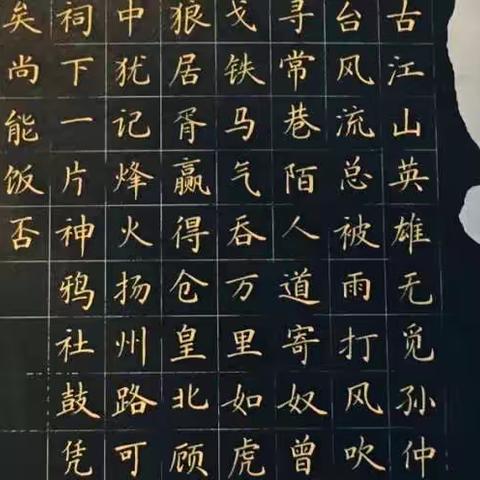 古江山英雄无觅孙仲
台风流总被雨打风吹
寻常巷陌人道寄奴曾
戈铁马气吞万里如虎
狼居胥赢得仓皇北顾
中犹记烽火扬州路可
祠下一片神鸦社鼓凭
矣尚能饭否